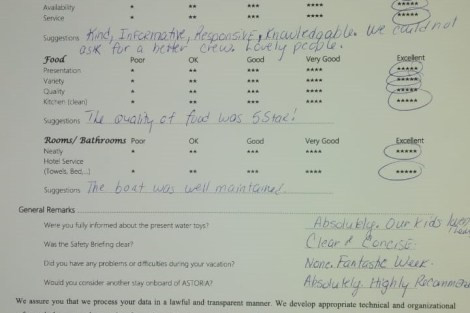 Availability * ** *** **** *****
Service * ** *** **** *****
Suggestions Kind, Informative, Responsive, Knowledgable. We could not
ask for a better crew. Lovely people.
Food Poor OK Good Very Good Excellent
Presentation * ** *** **** *****
Variety * ** *** **** *****
Quality * ** *** **** *****
Kitchen (clean) * ** *** **** *****
Suggestions The quality of food was 5 Star!
Rooms/ Bathrooms Poor OK Good Very Good Excellent
Neatly * ** *** **** *****
Hotel Service
(Towels, Bed,...) * ** *** **** *****
Suggestions The boat was well maintained.
General Remarks
Were you fully informed about the present water toys? Absolutely. Our kids
Was the Safety Briefing clear? Clear & Concise.
Did you have any problems or difficulties during your vacation? None. Fantastic Week.
Would you consider another stay onboard of ASTORIA? Absolutely. Highly Recommend
We assure you that we process your data in a lawful and transparent manner. We develop appropriate technical and organizational